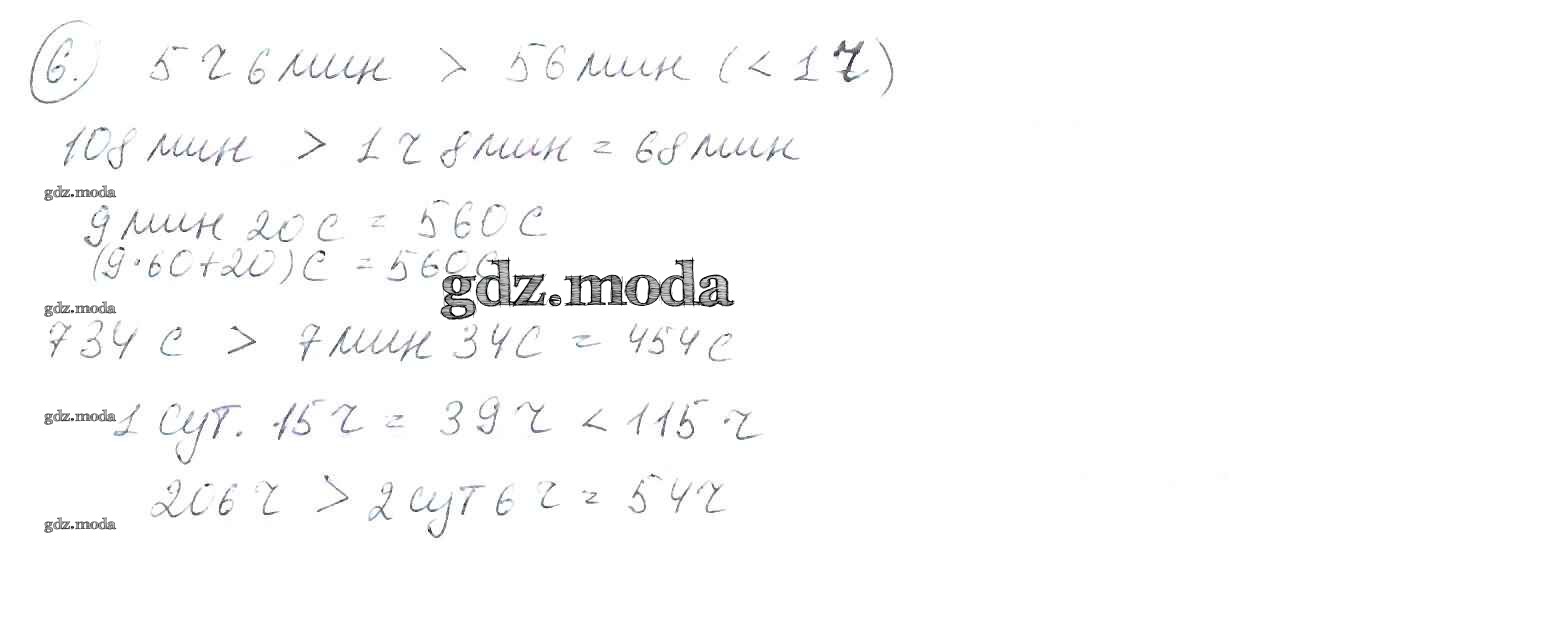 6. 5 ч 6 мин > 56 мин (< 1 ч)
108 мин > 1 ч 8 мин = 68 мин
gdz.moda
9 мин 20 с = 560 с
(9·60+20) с = 560 с
gdz.moda
gdz.moda
734 с > 7 мин 34 с = 454 с
gdz.moda
1 сут. 15 ч = 39 ч < 115 ч
206 ч > 2 сут 6 ч = 54 ч
gdz.moda